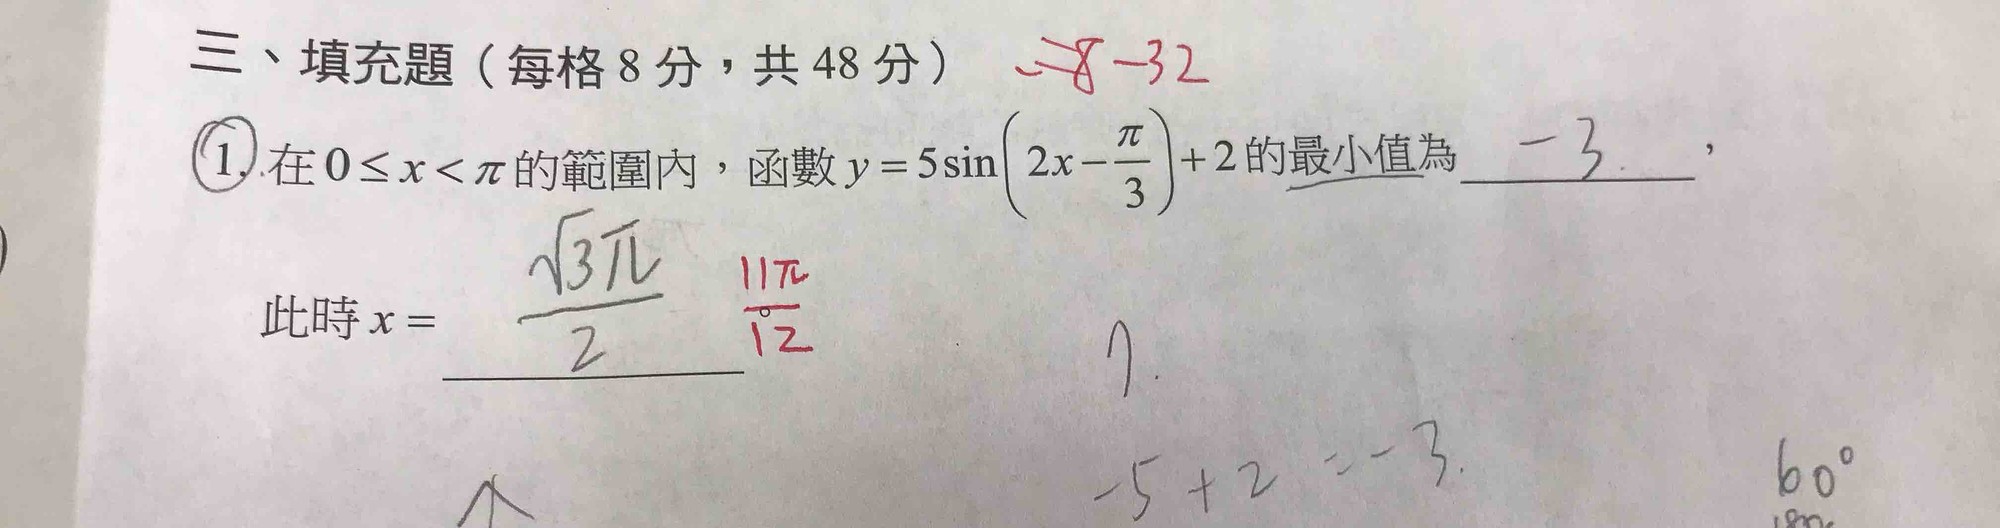 三、填充題（每格 8 分，共 48 分） -8 -32
1. 在 0 ≤ x < π 的範圍內，函數 y = 5 sin(2x − π/3) + 2 的最小值為 -3 ，
此時 x = √3π/2 11π/12
-5 + 2 = -3.
60°